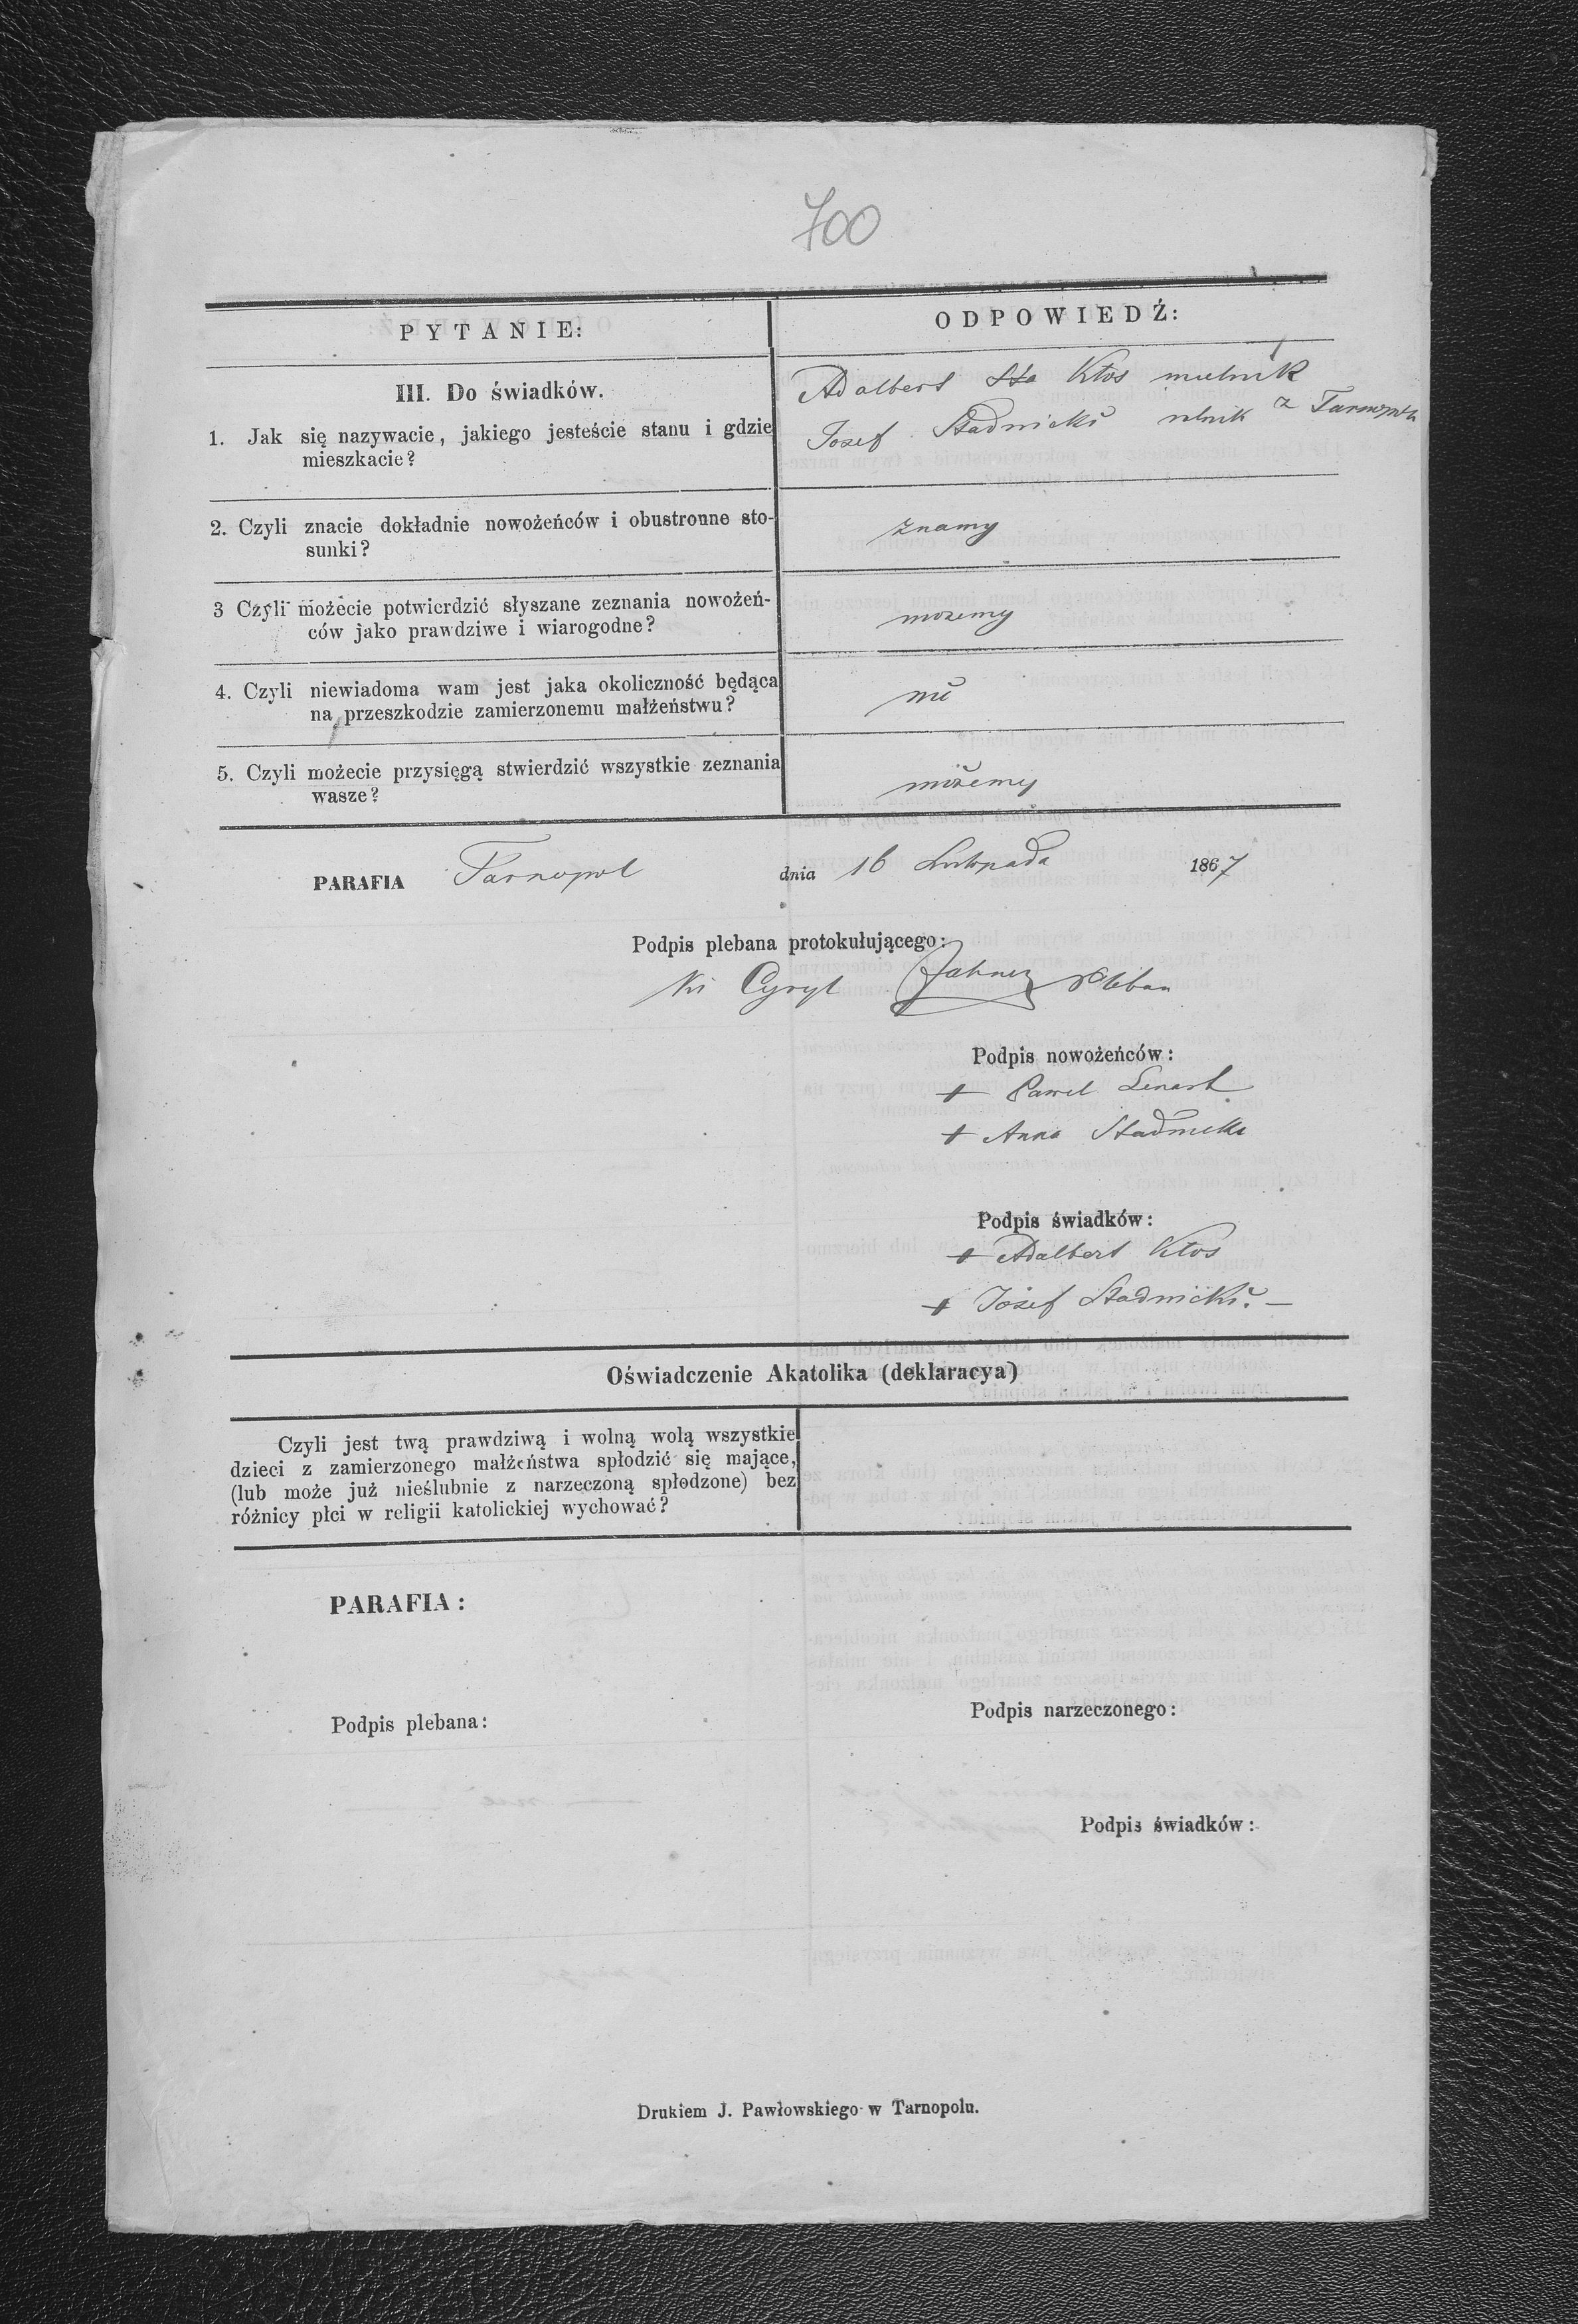 700
PYTANIE:
ODPOWIEDŹ:
III. Do świadków.
1. Jak się nazywacie, jakiego jesteście stanu i gdzie
mieszkacie?
Adalbert Kłos mielnik
Josef Stadnicki rolnik z Tarnopola
2. Czyli znacie dokładnie nowożeńców i obustronne sto-
sunki?
znamy
3 Czyli możecie potwierdzić słyszane zeznania nowożeń-
ców jako prawdziwe i wiarogodne?
mozemy
4. Czyli niewiadoma wam jest jaka okoliczność będąca
na przeszkodzie zamierzonemu małżeństwu?
nie
5. Czyli możecie przysięgą stwierdzić wszystkie zeznania
wasze?
możemy
PARAFIA Tarnopol dnia 16 Listopada 1867
Podpis plebana protokułującego:
Cyryl Pleban
Podpis nowożeńców:
+ Pawel Lenart
+ Anna Stadnicka
Podpis świadków:
+ Adalbert Kłos
+ Josef Stadnicki. –
Oświadczenie Akatolika (deklaracya)
Czyli jest twą prawdziwą i wolną wolą wszystkie
dzieci z zamierzonego małżeństwa spłodzić się mające,
(lub może już nieślubnie z narzeczoną spłodzone) bez
różnicy płci w religii katolickiej wychować?
PARAFIA:
Podpis plebana:
Podpis narzeczonego:
Podpis świadków:
Drukiem J. Pawłowskiego w Tarnopolu.